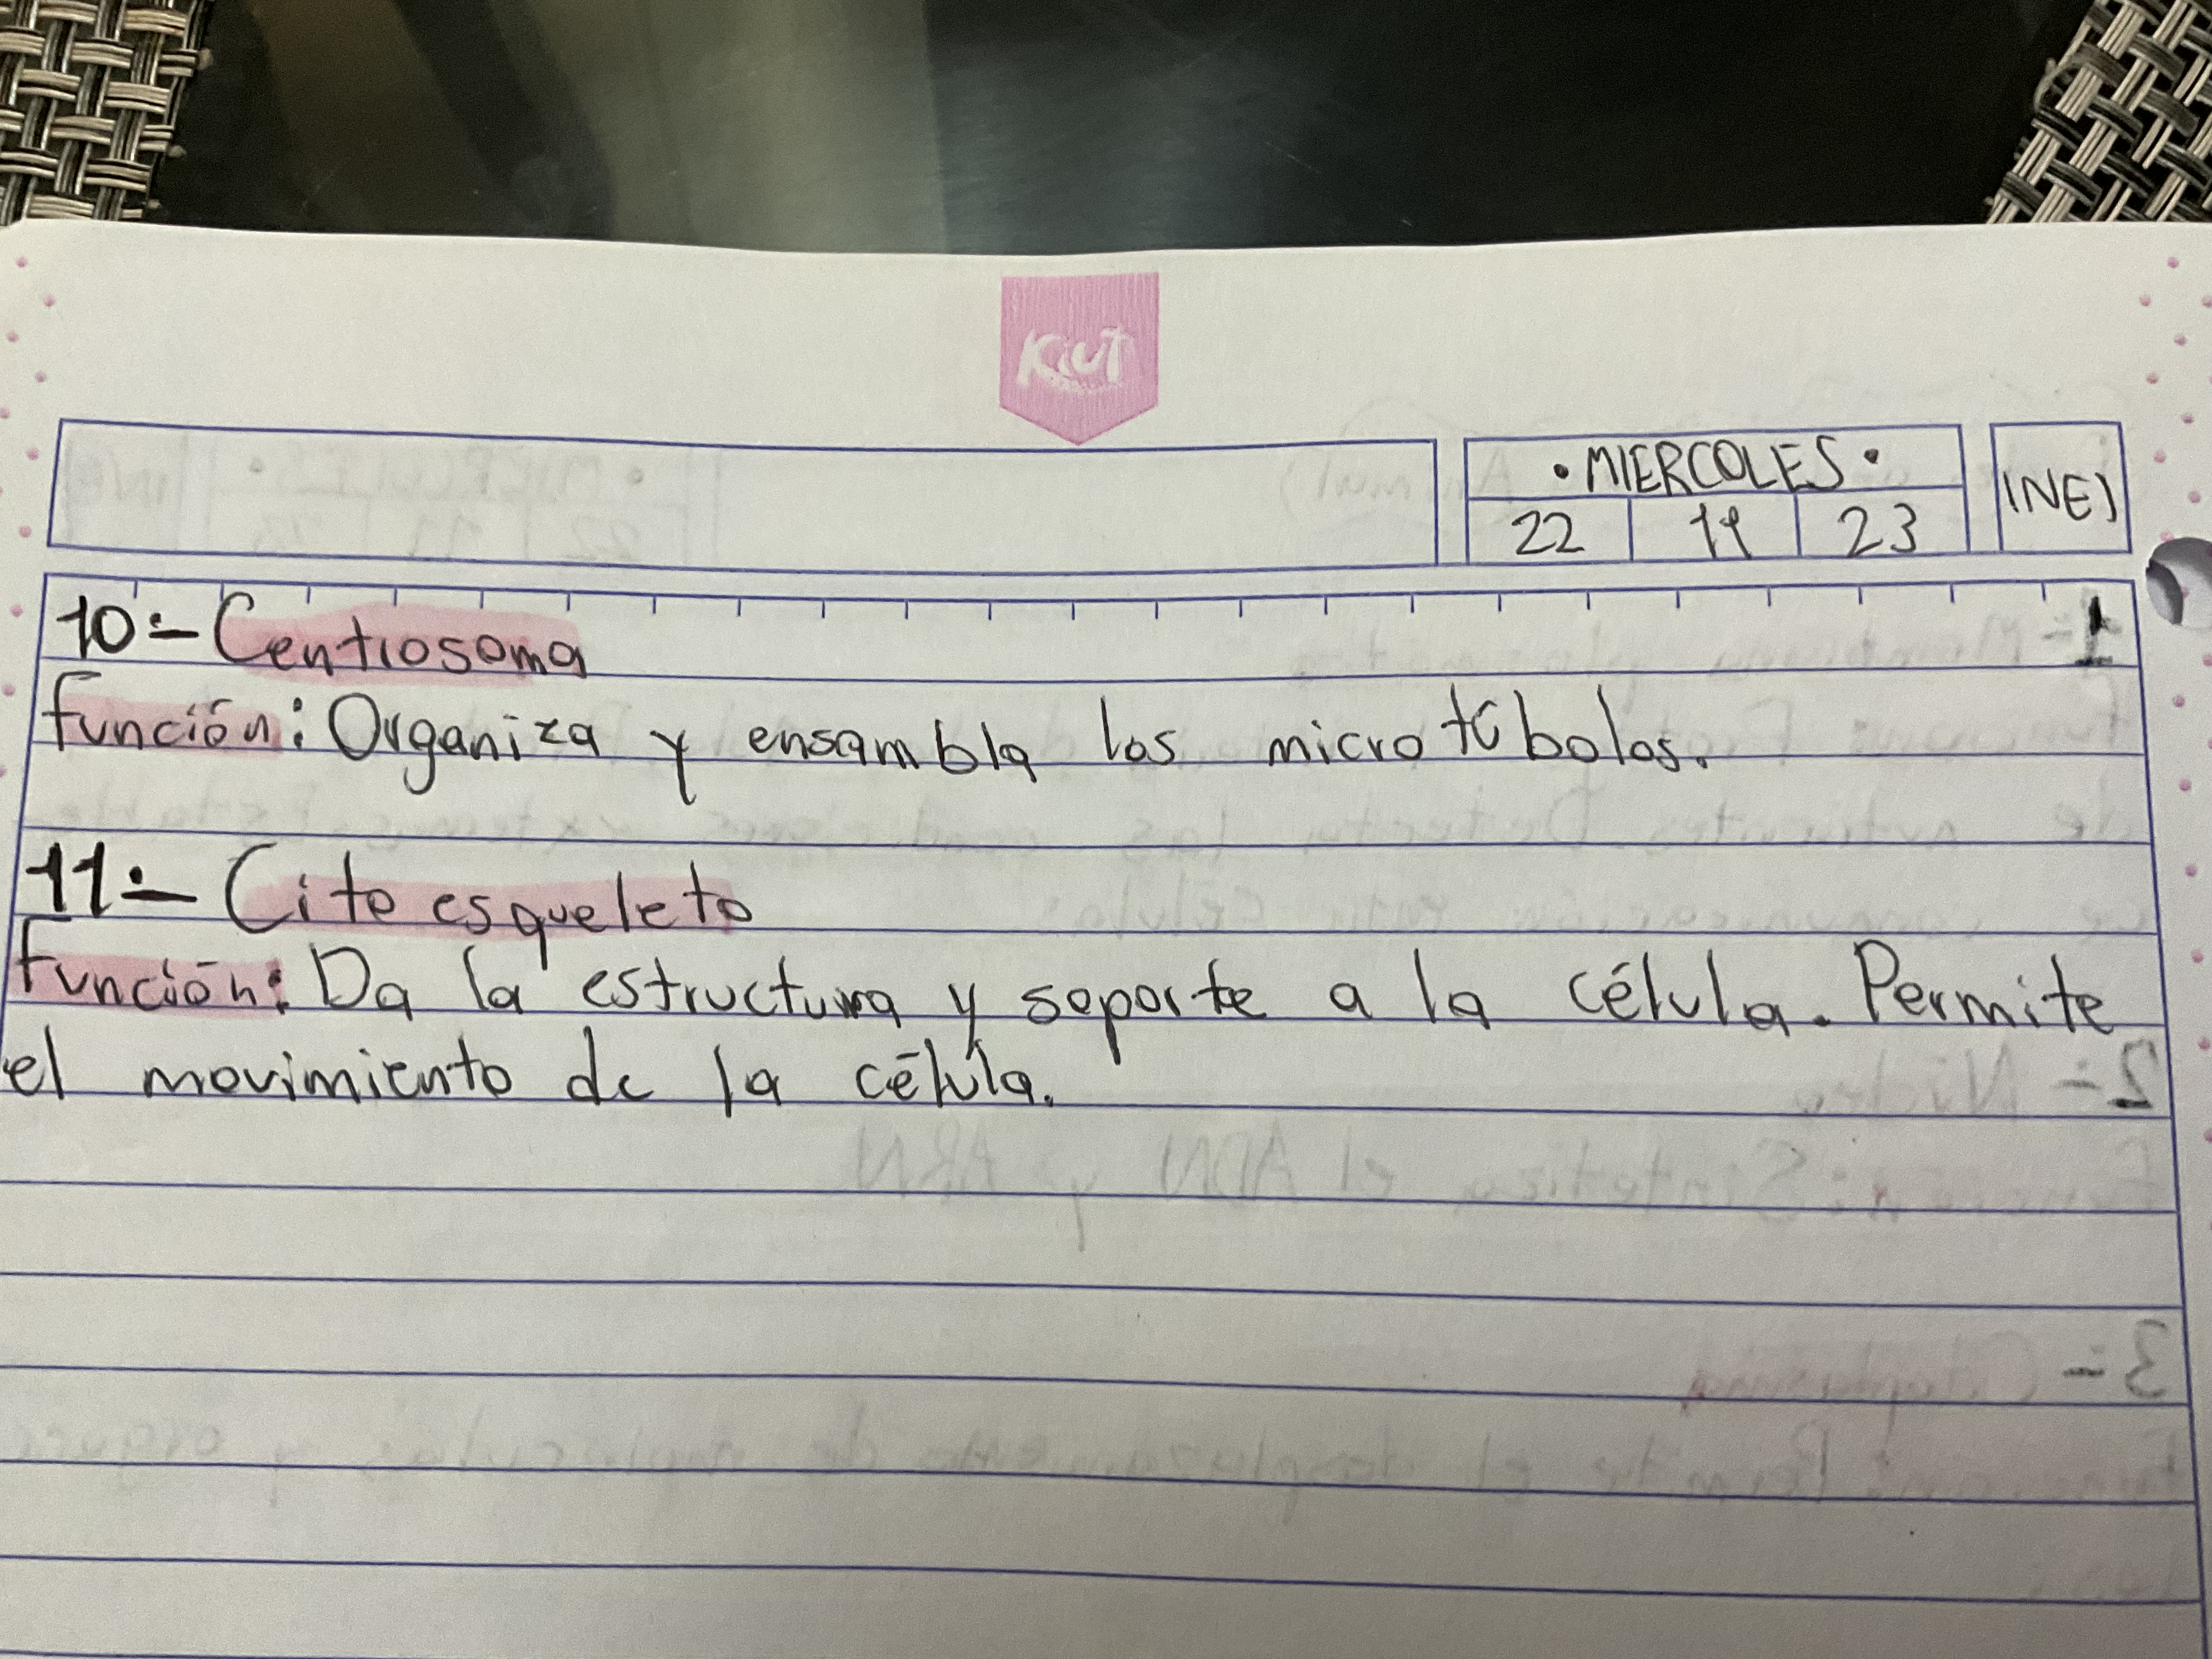 Kiut
• MIERCOLES •
INE)
22 11 23
10.- Centrosoma
función: Organiza y ensambla los micro túbolos.
11.- Cito esqueleto
Función: Da la estructura y soporte a la célula. Permite
el movimiento de la célula.